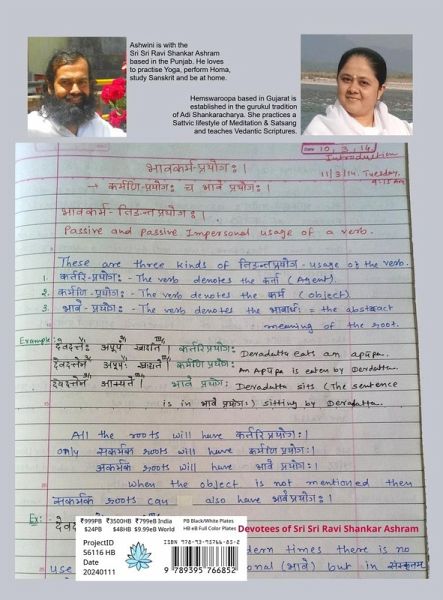 Ashwini is with the
Sri Sri Ravi Shankar Ashram
based in the Punjab. He loves
to practise Yoga, perform Homa,
study Sanskrit and be at home.
Hemswaroopa based in Gujarat is
established in the gurukul tradition
of Adi Shankaracharya. She practices a
Sattvic lifestyle of Meditation & Satsang
and teaches Vedantic Scriptures.
Date 10, 3, 14
Introduction
भावकर्म-प्रयोगः।
11/3/14, Tuesday,
9:15 AM
→ कर्मणि-प्रयोगः च भावे प्रयोगः।
भावकर्म-तिङन्तप्रयोगः।
Passive and passive Impersonal usage of a verb.
These are three kinds of तिङन्तप्रयोग - usage of the verb.
1. कर्तरि-प्रयोगः - The verb denotes the कर्ता (Agent)
2. कर्मणि-प्रयोगः - The verb denotes the कर्म (object)
3. भावे-प्रयोगः - The verb denotes the भावार्थः = the abstract
meaning of the root.
Example:- देवदत्तः अपूपं खादति। कर्तरि प्रयोगः Devadatta eats an apūpa.
देवदत्तेन अपूपः खाद्यते। कर्मणि प्रयोगः An Apūpa is eaten by Devdatta.
देवदत्तेन आस्यते। भावे प्रयोगः Devadatta sits (The sentence
is in भावे प्रयोगः) sitting by Devadatta.
All the roots will have कर्तरि प्रयोगः।
only सकर्मक roots will have कर्मणि प्रयोगः।
अकर्मक roots will have भावे प्रयोगः।
When the object is not mentioned then
सकर्मक roots can also have भावेप्रयोगः।
Ex:-
₹999PB ₹3500HB ₹799eB India PB Black/White Plates
$24PB $48HB $9.99eB World HB eB Full Color Plates
Devotees of Sri Sri Ravi Shankar Ashram
ProjectID
S6116 HB
Date
20240111
ISBN 978-93-95766-85-2
9 789395 766852
dern times there is no
use
onal (भावे) but in संस्कृतम्